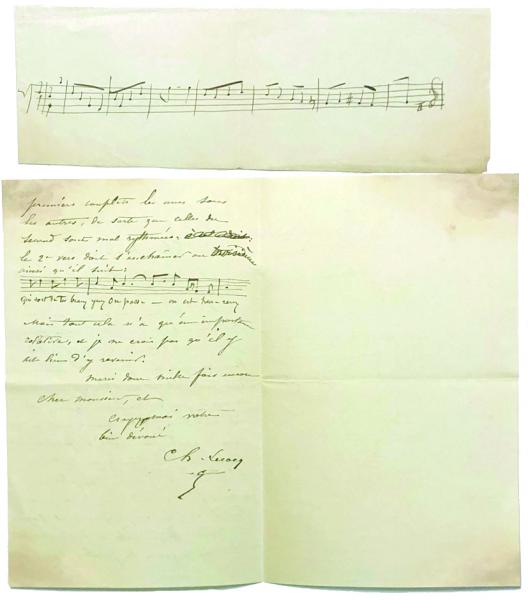 premiers couplets les unes sous
les autres, de sorte que celles du
second sont mal rythmées.
le 2e vers doit s'enchaîner au troisième
ainsi qu'il suit:
On passe – on est heu-reux
Mais tout cela n'a qu'une importance
relative, et je ne crois pas qu'il y
ait lieu d'y revenir.
Merci donc mille fois encore
cher monsieur, et
croyez moi votre
bien dévoué
Ch. Lecocq